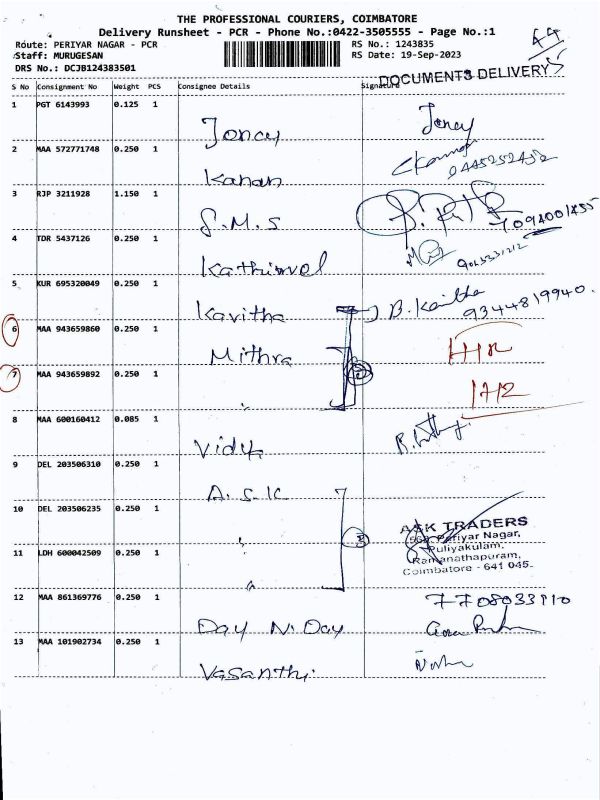 THE PROFESSIONAL COURIERS, COIMBATORE
Delivery Runsheet - PCR - Phone No.:0422-3505555 - Page No.:1
Route: PERIYAR NAGAR - PCR RS No.: 1243835
Staff: MURUGESAN RS Date: 19-Sep-2023
DRS No.: DCJB124383501
DOCUMENTS DELIVERY
S No Consignment No Weight PCS Consignee Details Signature
1 PGT 6143993 0.125 1
Joncy Joncy
2 MAA 572771748 0.250 1
Kanan
3 RJP 3211928 1.150 1
S.M.S
4 TDR 5437126 0.250 1
Kathirvel
5 KUR 695320049 0.250 1
Kavitha 9344819940.
6 MAA 943659860 0.250 1
Mithra
7 MAA 943659892 0.250 1
"
8 MAA 600160412 0.085 1
Vidya
9 DEL 203506310 0.250 1
A.S.K
10 DEL 203506235 0.250 1
"
ASK TRADERS
Periyar Nagar,
Puliyakulam,
Ramanathapuram,
Coimbatore - 641 045.
11 LDH 600042509 0.250 1
"
12 MAA 861369776 0.250 1
Day N. Day
13 MAA 101902734 0.250 1
Vasanthi